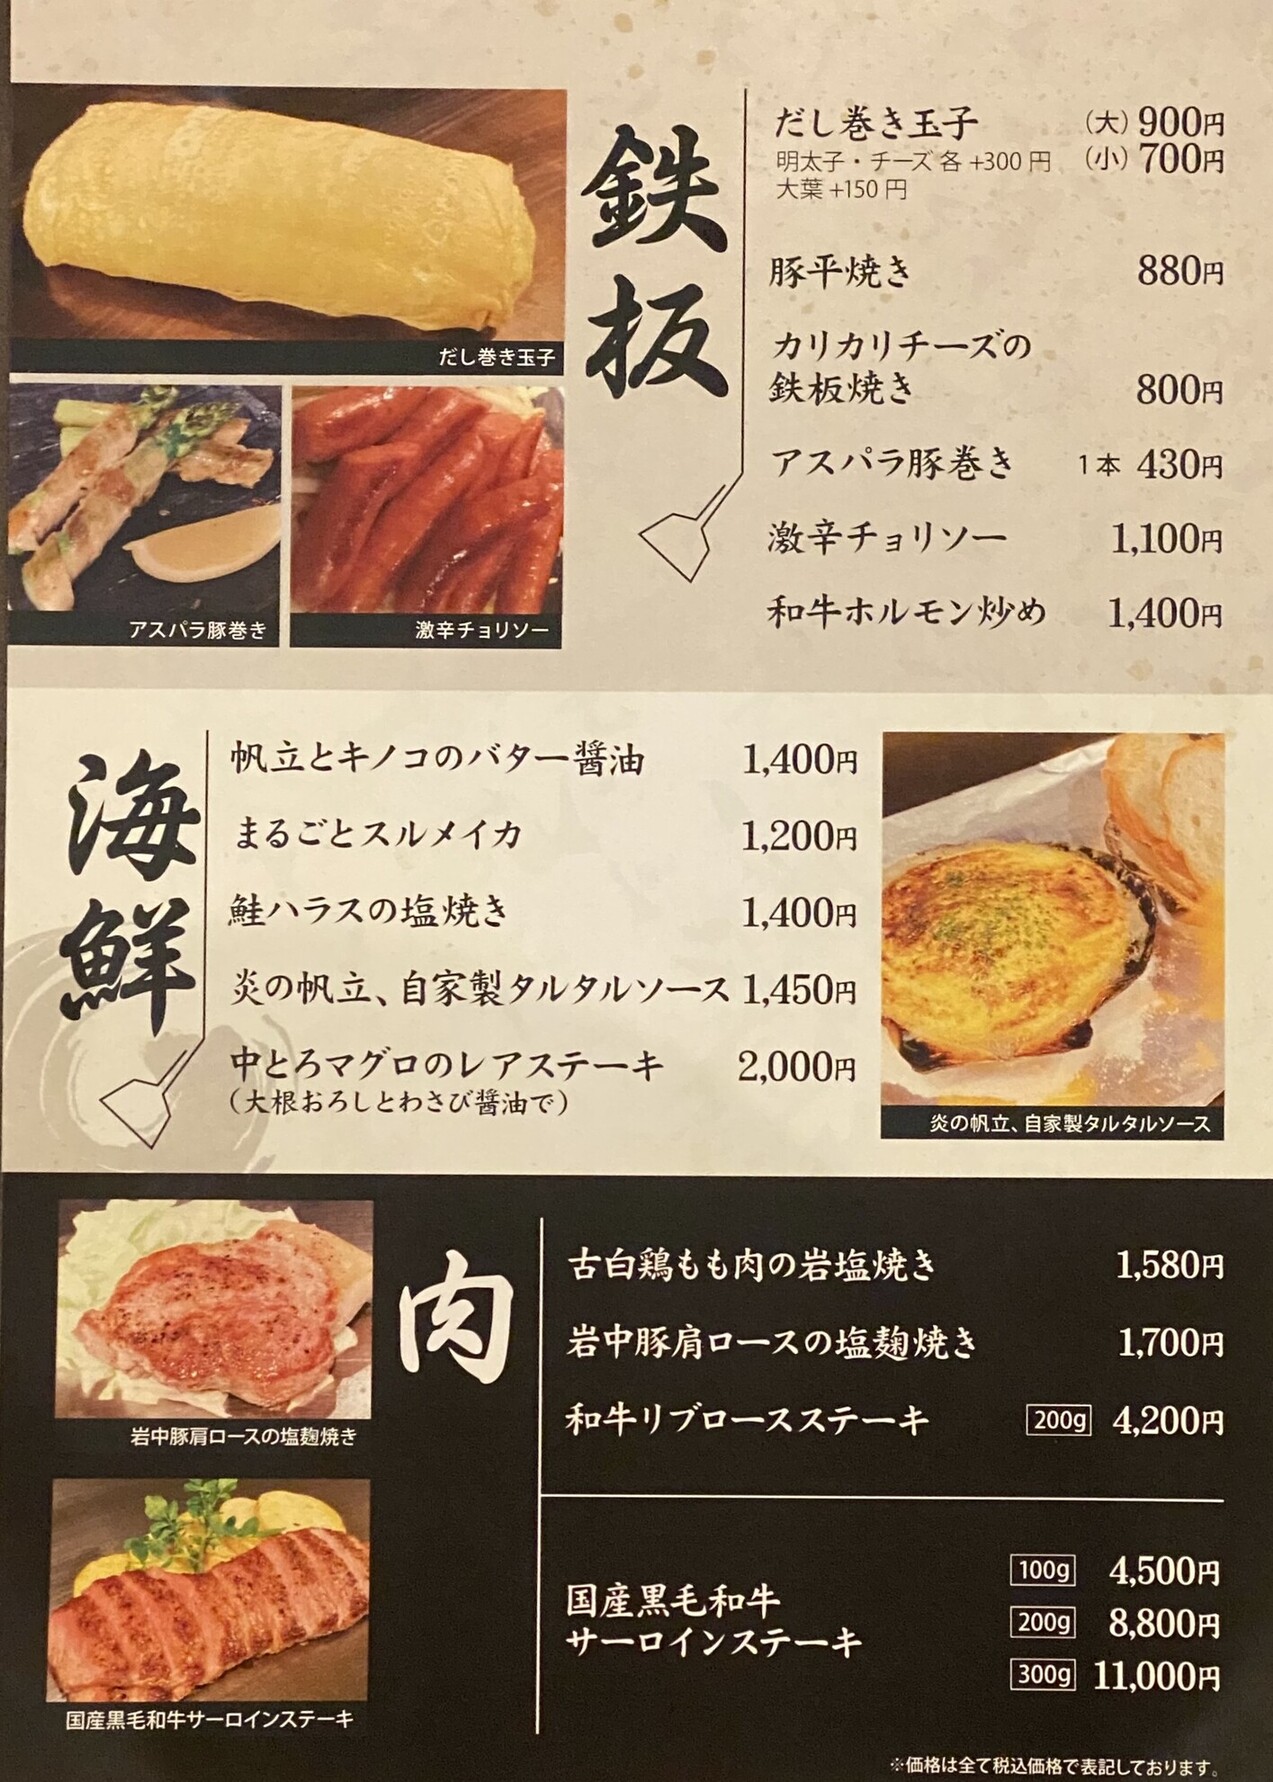 鉄板
だし巻き玉子 （大）900円
明太子・チーズ 各 +300 円 （小）700円
大葉 +150 円
豚平焼き 880円
カリカリチーズの
鉄板焼き 800円
アスパラ豚巻き 1本 430円
激辛チョリソー 1,100円
和牛ホルモン炒め 1,400円
だし巻き玉子
アスパラ豚巻き
激辛チョリソー
海鮮
帆立とキノコのバター醤油 1,400円
まるごとスルメイカ 1,200円
鮭ハラスの塩焼き 1,400円
炎の帆立、自家製タルタルソース 1,450円
中とろマグロのレアステーキ 2,000円
（大根おろしとわさび醤油で）
炎の帆立、自家製タルタルソース
肉
古白鶏もも肉の岩塩焼き 1,580円
岩中豚肩ロースの塩麹焼き 1,700円
和牛リブロースステーキ 200g 4,200円
国産黒毛和牛
サーロインステーキ
100g 4,500円
200g 8,800円
300g 11,000円
岩中豚肩ロースの塩麹焼き
国産黒毛和牛サーロインステーキ
※価格は全て税込価格で表記しております。